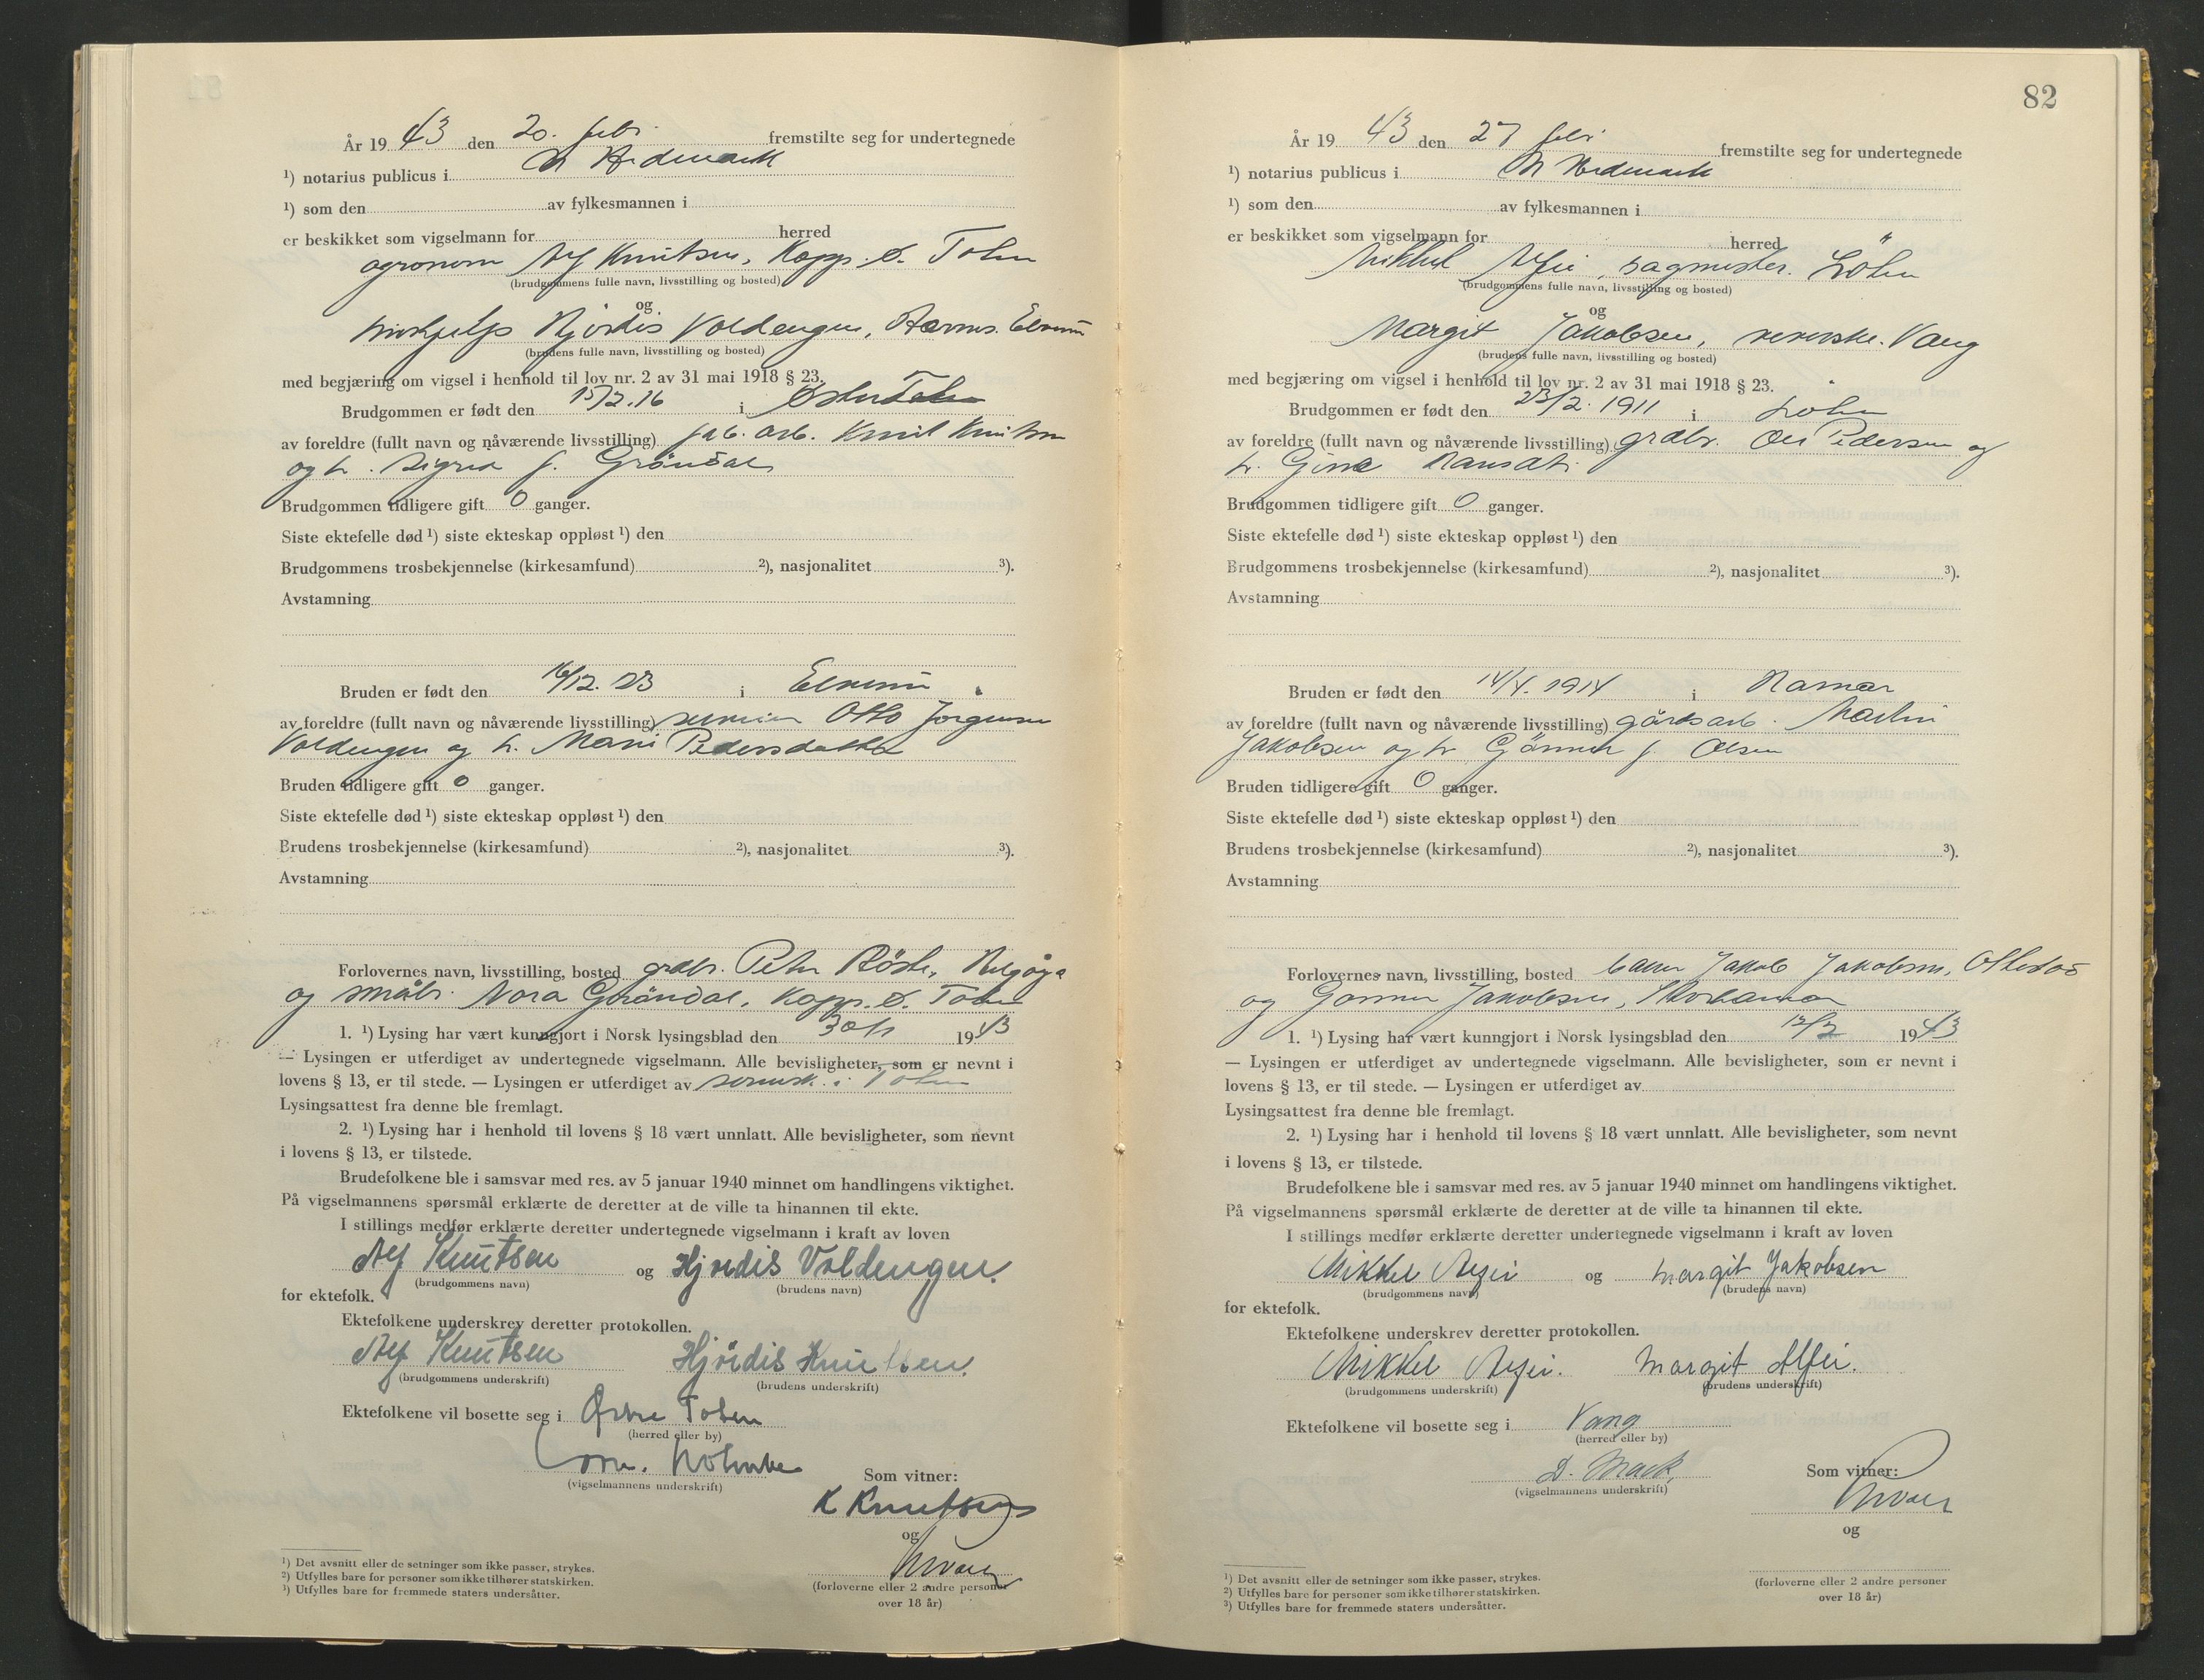 År 19 43 den 20. febr. fremstilte seg for undertegnede
¹) notarius publicus i N Hedmark
¹) som den av fylkesmannen i
er beskikket som vigselmann for herred
agronom Alf Knutsen, Kapp. Ø. Toten
(brudgommens fulle navn, livsstilling og bosted)
og
Hjørdis Voldengen, Elverum
(brudens fulle navn, livsstilling og bosted)
med begjæring om vigsel i henhold til lov nr. 2 av 31 mai 1918 § 23.
Brudgommen er født den 15/2.16 i Østre Toten
av foreldre (fullt navn og nåværende livsstilling) fab. arb. Knut Knutsen
og h. Sigrid f. Gröndal
Brudgommen tidligere gift 0 ganger.
Siste ektefelle død ¹) siste ekteskap oppløst ¹) den
Brudgommens trosbekjennelse (kirkesamfund) ²), nasjonalitet ³).
Avstamning
Bruden er født den 16/12. 23 i Elverum
av foreldre (fullt navn og nåværende livsstilling) Otto Jörgensen
Voldengen og h. Marie Pedersdatter
Bruden tidligere gift 0 ganger.
Siste ektefelle død ¹) siste ekteskap oppløst ¹) den
Brudens trosbekjennelse (kirkesamfund) ²), nasjonalitet ³).
Avstamning
Forlovernes navn, livsstilling, bosted grdbr. Peter Röste, Helgøya
og småbr. Nora Gröndal, Kapp. Ø. Toten
1. ¹) Lysing har vært kunngjort i Norsk lysingsblad den 30/1 19 43
— Lysingen er utferdiget av undertegnede vigselmann. Alle bevisligheter, som er nevnt i
lovens § 13, er til stede. — Lysingen er utferdiget av sorensk. i Toten
Lysingsattest fra denne ble fremlagt.
2. ¹) Lysing har i henhold til lovens § 18 vært unnlatt. Alle bevisligheter, som nevnt
i lovens § 13, er tilstede.
Brudefolkene ble i samsvar med res. av 5 januar 1940 minnet om handlingens viktighet.
På vigselmannens spørsmål erklærte de deretter at de ville ta hinannen til ekte.
I stillings medfør erklærte deretter undertegnede vigselmann i kraft av loven
Alf Knutsen og Hjørdis Voldengen.
(brudgommens navn) (brudens navn)
for ektefolk.
Ektefolkene underskrev deretter protokollen.
Alf Knutsen Hjørdis Knutsen.
(brudgommens underskrift) (brudens underskrift)
Ektefolkene vil bosette seg i Østre Toten
(herred eller by)
(vigselmannens underskrift)
Som vitner:
K Knutsen
og
(forloverne eller 2 andre personer
over 18 år)
¹) Det avsnitt eller de setninger som ikke passer, strykes.
²) Utfylles bare for personer som ikke tilhører statskirken.
³) Utfylles bare for fremmede staters undersåtter.
82
År 19 43 den 27 febr fremstilte seg for undertegnede
¹) notarius publicus i N Hedmark
¹) som den av fylkesmannen i
er beskikket som vigselmann for herred
Mikkel Alfei, sagmester. Löten
(brudgommens fulle navn, livsstilling og bosted)
og
Margit Jakobsen, Vang
(brudens fulle navn, livsstilling og bosted)
med begjæring om vigsel i henhold til lov nr. 2 av 31 mai 1918 § 23.
Brudgommen er født den 23/2. 1911 i Löten
av foreldre (fullt navn og nåværende livsstilling) grdbr. Ole Pedersen og
h. Gina
Brudgommen tidligere gift 0 ganger.
Siste ektefelle død ¹) siste ekteskap oppløst ¹) den
Brudgommens trosbekjennelse (kirkesamfund) ²), nasjonalitet ³).
Avstamning
Bruden er født den 14/4. 1914 i Hamar
av foreldre (fullt navn og nåværende livsstilling) gårdsarb. Martin
Jakobsen og h f. Olsen
Bruden tidligere gift 0 ganger.
Siste ektefelle død ¹) siste ekteskap oppløst ¹) den
Brudens trosbekjennelse (kirkesamfund) ²), nasjonalitet ³).
Avstamning
Forlovernes navn, livsstilling, bosted Jakob Jakobsen, Ottestad
og Jakobsen,
1. ¹) Lysing har vært kunngjort i Norsk lysingsblad den 12/2 19 43
— Lysingen er utferdiget av undertegnede vigselmann. Alle bevisligheter, som er nevnt i
lovens § 13, er til stede. — Lysingen er utferdiget av
Lysingsattest fra denne ble fremlagt.
2. ¹) Lysing har i henhold til lovens § 18 vært unnlatt. Alle bevisligheter, som nevnt
i lovens § 13, er tilstede.
Brudefolkene ble i samsvar med res. av 5 januar 1940 minnet om handlingens viktighet.
På vigselmannens spørsmål erklærte de deretter at de ville ta hinannen til ekte.
I stillings medfør erklærte deretter undertegnede vigselmann i kraft av loven
Mikkel Alfei og Margit Jakobsen
(brudgommens navn) (brudens navn)
for ektefolk.
Ektefolkene underskrev deretter protokollen.
Mikkel Alfei. Margit Alfei.
(brudgommens underskrift) (brudens underskrift)
Ektefolkene vil bosette seg i Vang
(herred eller by)
D. Mack.
(vigselmannens underskrift)
Som vitner:
og
(forloverne eller 2 andre personer
over 18 år)
¹) Det avsnitt eller de setninger som ikke passer, strykes.
²) Utfylles bare for personer som ikke tilhører statskirken.
³) Utfylles bare for fremmede staters undersåtter.